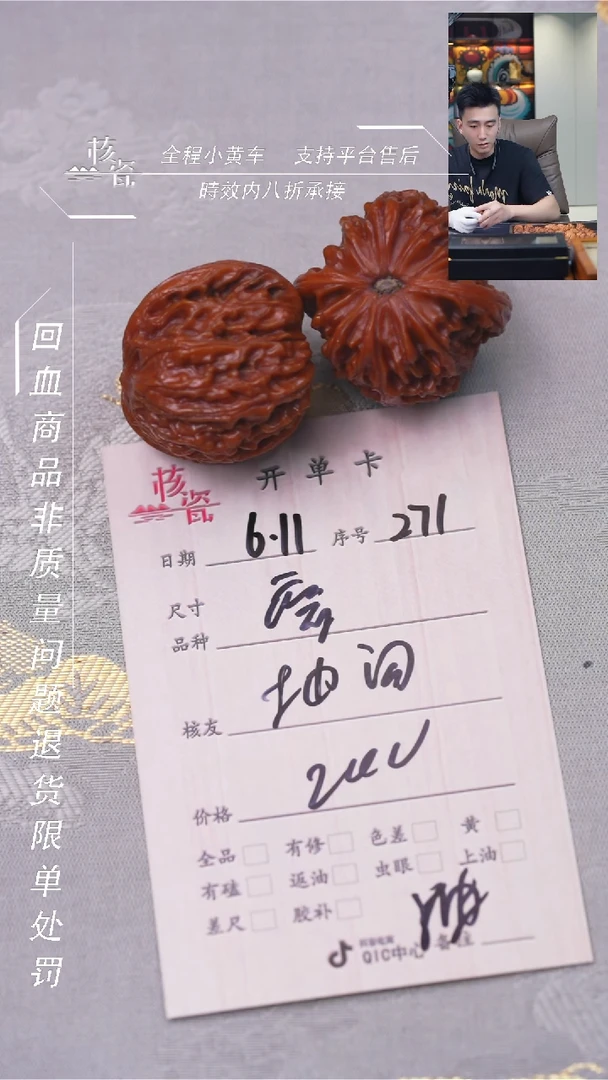 核瓷
全程小黄车 支持平台售后
時效内八折承接
回血商品非质量问题退货限单处罚
核瓷
开单卡
日期 6·11 序号 271
尺寸
品种
核友
价格
全品 有修 色差 黄
有磕 返油 虫眼 上油
差尺 胶补
抖音电商
QIC中心 备注